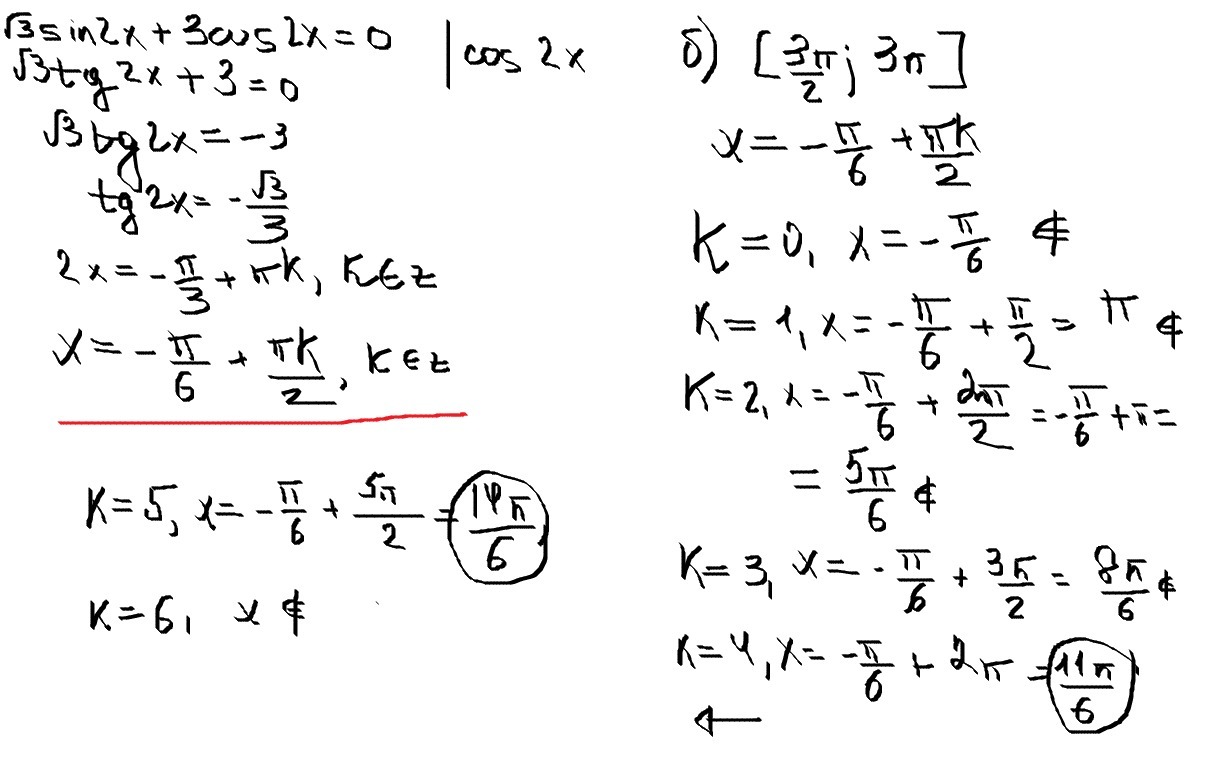 √3 sin2x + 3cos2x = 0 | cos 2x
√3 tg 2x + 3 = 0
√3 tg 2x = -3
tg 2x = -√3/3
2x = -π/3 + πk, k∈z
x = -π/6 + πk/2, k∈z
k=5, x = -π/6 + 5π/2 = 14π/6
k=6, x ∉
б) [3π/2; 3π]
x = -π/6 + πk/2
k=0, x = -π/6 ∉
k=1, x = -π/6 + π/2 = π ∉
k=2, x = -π/6 + 2π/2 = -π/6 + π =
= 5π/6 ∉
k=3, x = -π/6 + 3π/2 = 8π/6 ∉
k=4, x = -π/6 + 2π = 11π/6
←